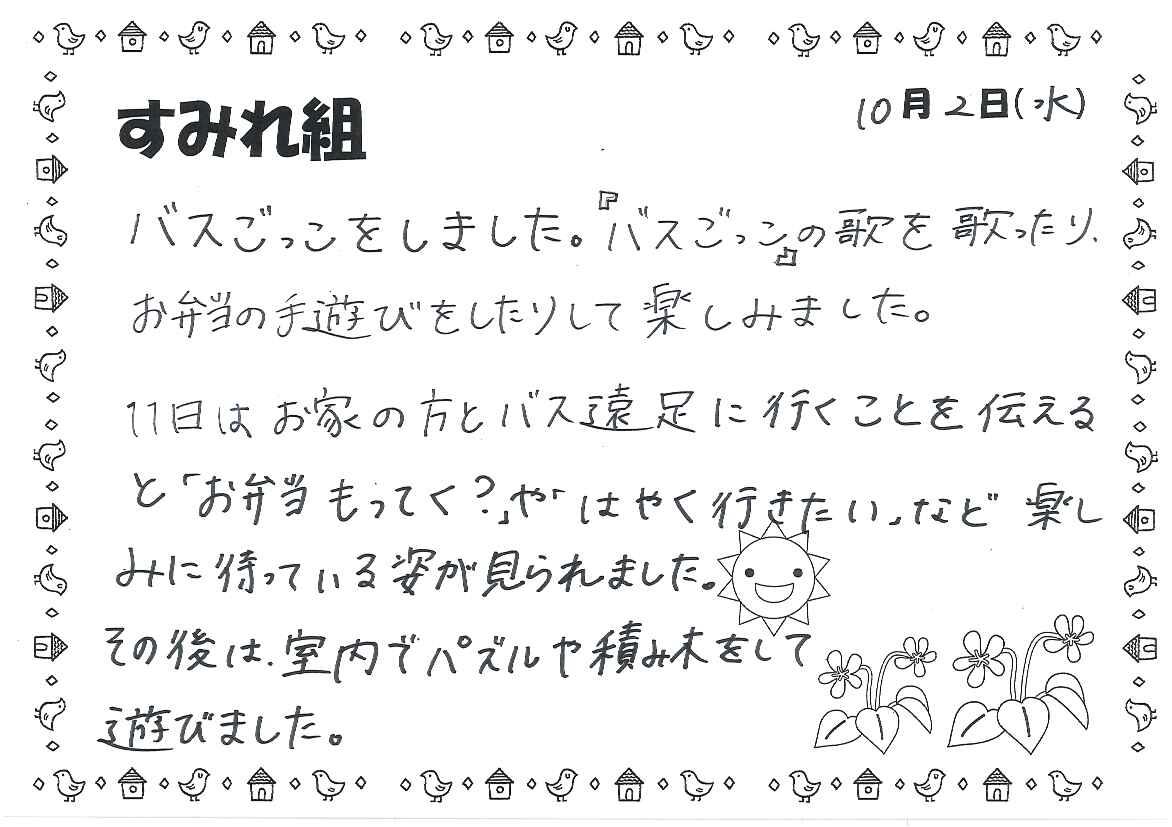 すみれ組
10月2日(水)
バスごっこをしました。『バスごっこ』の歌を歌ったり、
お弁当の手遊びをしたりして楽しみました。
11日はお家の方とバス遠足に行くことを伝える
と「お弁当もってく?」や「はやく行きたい」など楽し
みに待っている姿が見られました。
その後は、室内でパズルや積み木をして
遊びました。